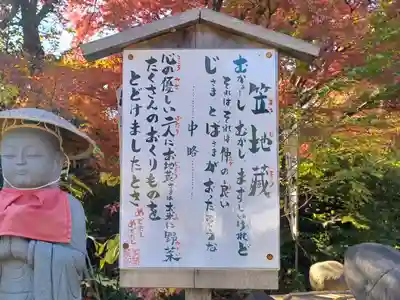 笠地蔵
むかし むかし まずしいけれど
それはそれは仲の良い
じさまとばさまがおったそうな
中略
心の優しい二人にお地蔵さまは米に野菜
たくさんのおくりものを
とどけましたとさ
めでたし
めでたし